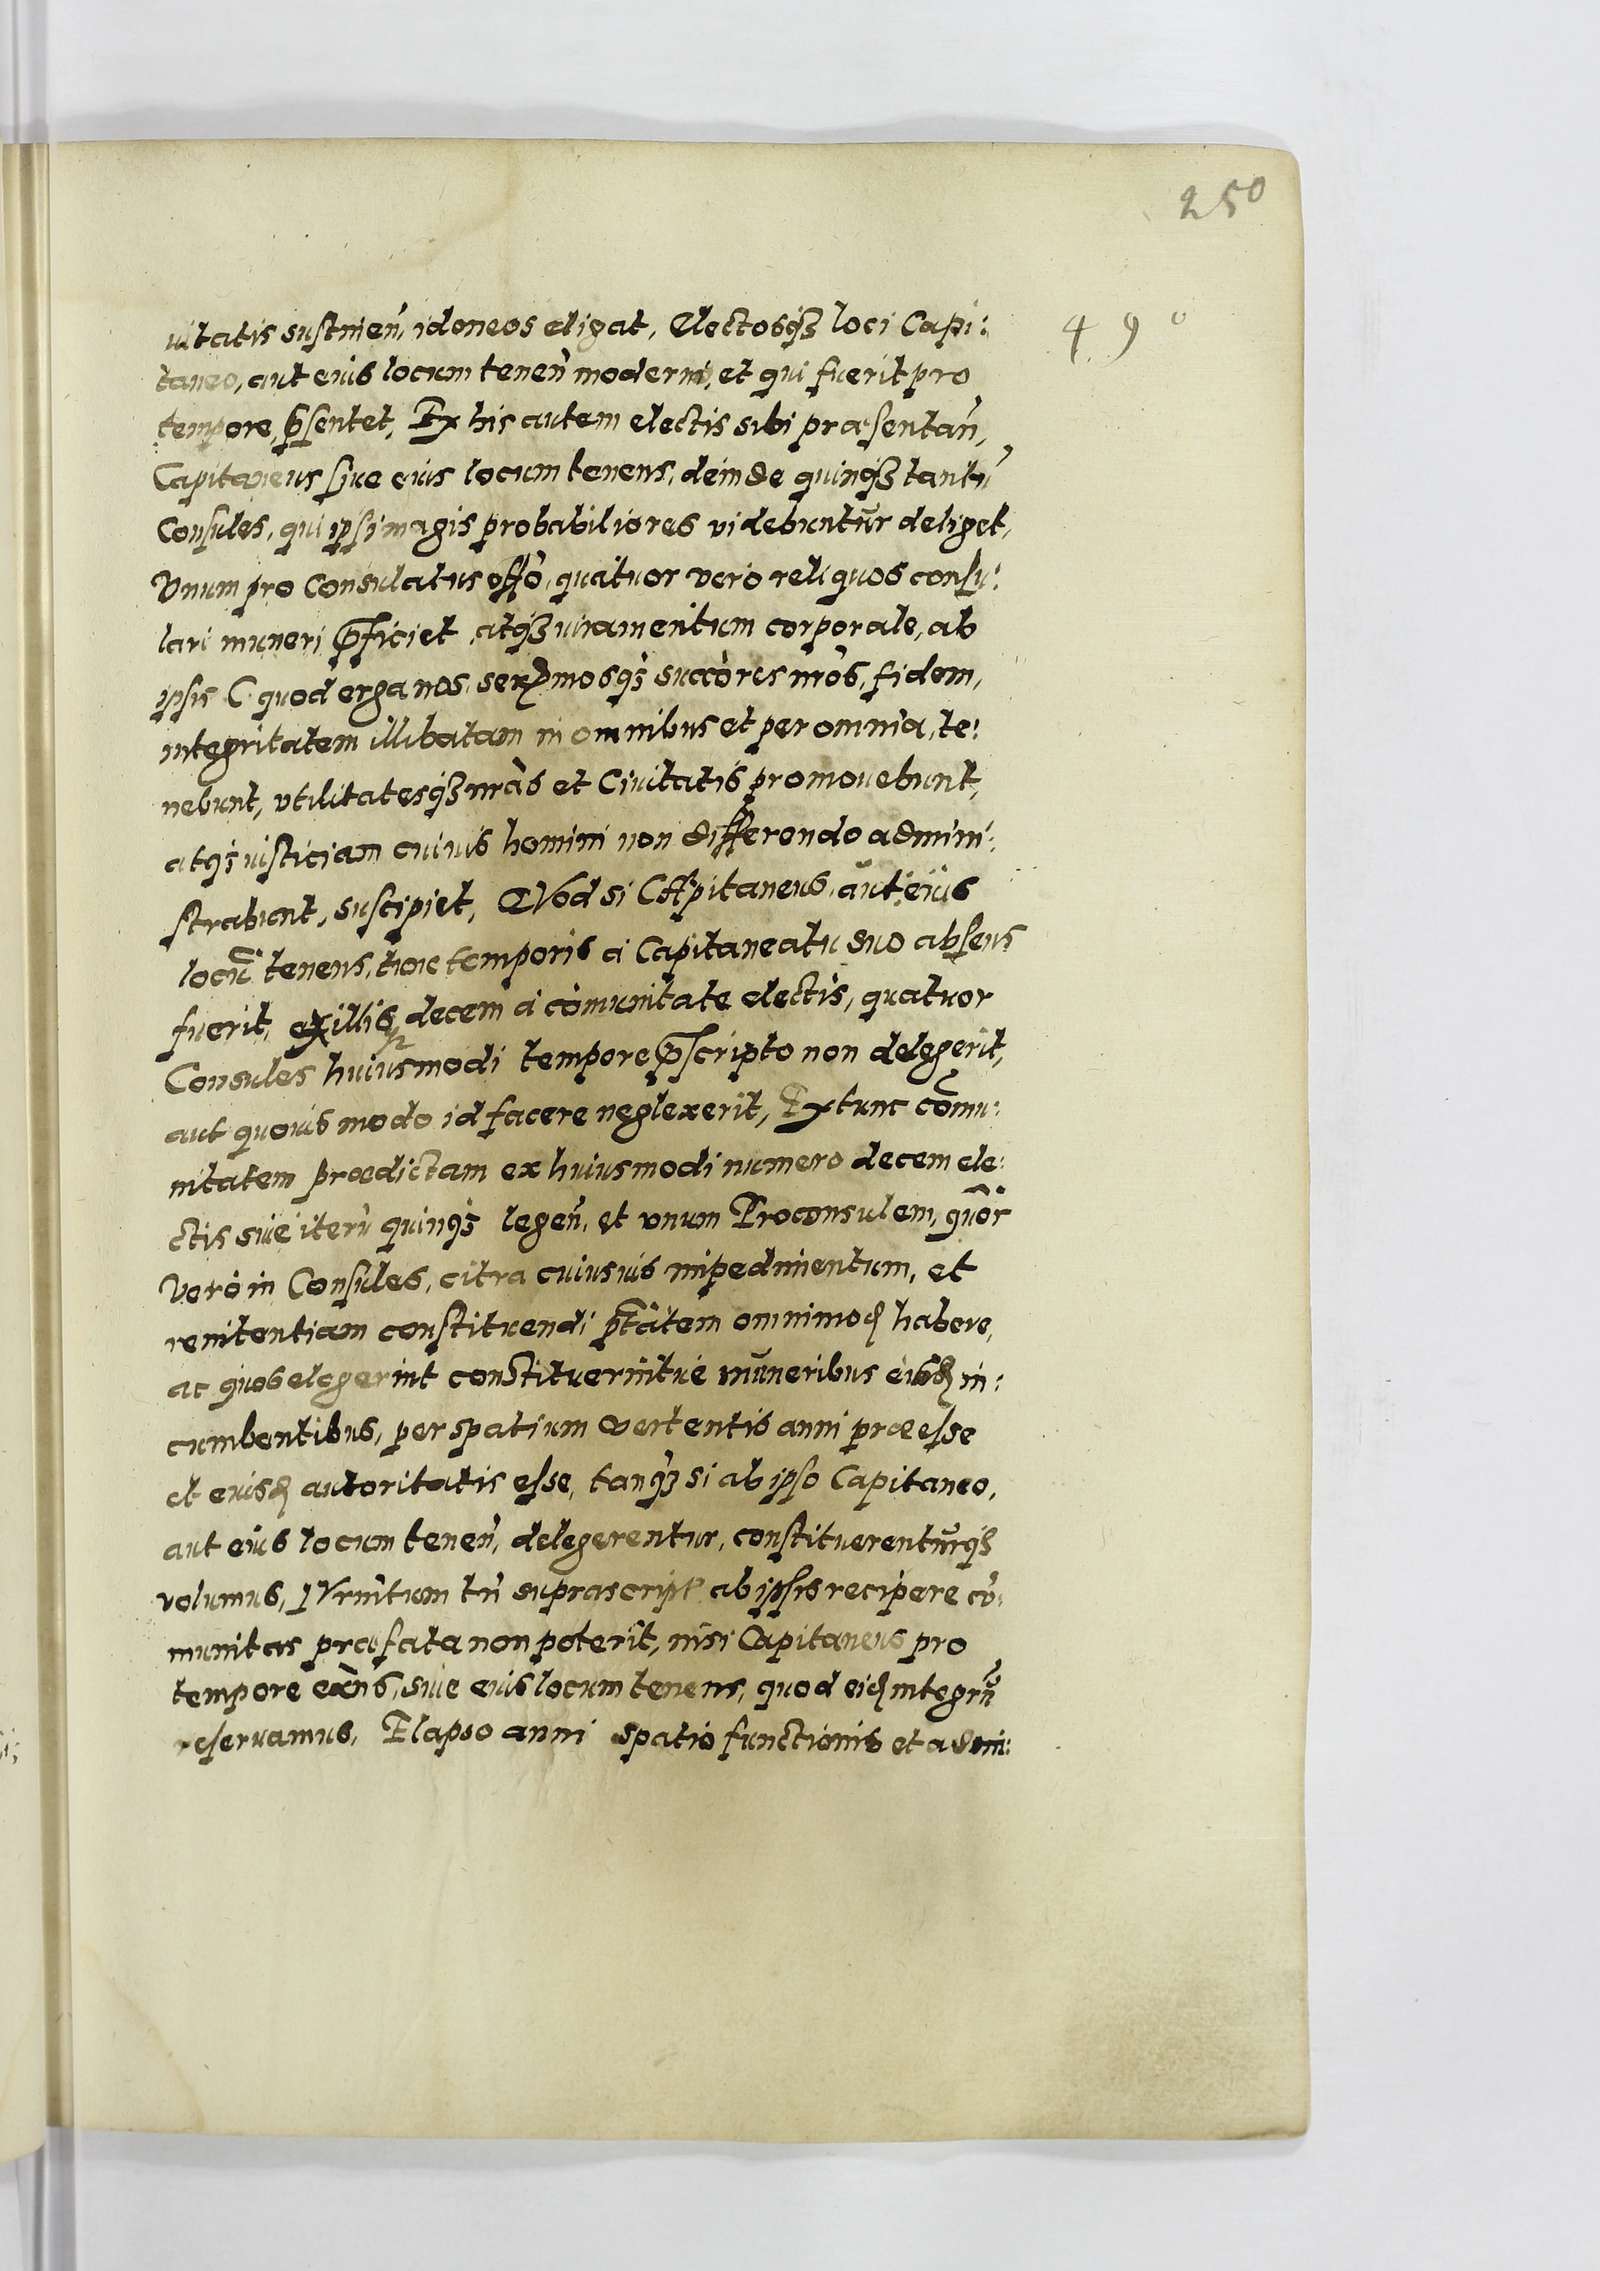 250
49⁰
uitatis sustinen̄, idoneos eligat, Electosqꝫ loci Capi:
taneo, aut eius locum tenen̄ moderni, et qui fuerit pro
tempore, p̄sentet, Ex his autem electis sibi præsentan̄,
Capitaneus siue eius locum tenens, deinde quinqꝫ tantū
Consules, qui ipsi magis probabiliores videbuntur deliget,
Vnum pro Consulatus offò, quatuor vero reliquos consu:
lari muneri p̄ficiet, atqꝫ iuramentum corporale, ab
ipsis C. quod erga nos, sermosqꝫ succòres nròs, fidem,
integritatem illibatam in omnibus et per omnia, te:
nebunt, vtilitatesqꝫ nràs et Ciuitatis promouebunt,
atqꝫ iusticiam cuiuis homini non differendo admini:
strabunt, suscipiet, Quod si CApitaneus, aut eius
locū tenens, tunc temporis a Capitaneatu suo absens
fuerit, ex illis decem a comunitate electis, quatuor
Consules huiusmodi tempore p̄scripto non delegerit,
aut quouis modo id facere neglexerit, Extunc com̄u:
nitatem prædictam ex huiusmodi numero decem ele:
ctis siue iterū quinqꝫ legen̄, et vnum Proconsulem, quor
Vero in Consules, citra cuiusuis impedimentum, et
renitentiam constituendi p̄tatem omnimod habere,
ac quos elegerint constituerintue muneribus eisd in:
cumbentibus, per spatium vertentis anni præesse
et eiusd autoritatis esse, tanqꝫ si ab ipso Capitaneo,
aut eius locum tenen̄, delegerentur, constituerenturqꝫ
volumus, IVrmtum tn̄ suprascript ab ipsis recipere cō:
munitas præfata non poterit, nisi Capitaneus pro
tempore exns, siue eius locum tenens, quod eid integrū
reseruamus, Elapso anni spatio functionis et admi: